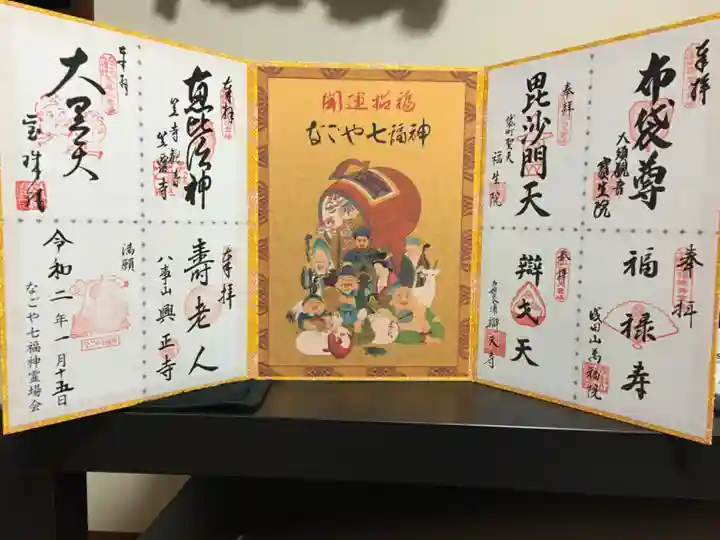 奉拝
布袋尊
大須観音
寳生院
奉拝
毘沙門天
袋町聖天
福生院
奉拝
福禄寿
成田山萬福院
奉拝
辯才天
辨天寺
開運招福
なごや七福神
奉拝
恵比須神
笠寺観音
笠覆寺
奉拝
大黒天
宝珠院
奉拝
寿老人
八事山興正寺
満願
令和二年一月十五日
なごや七福神霊場会